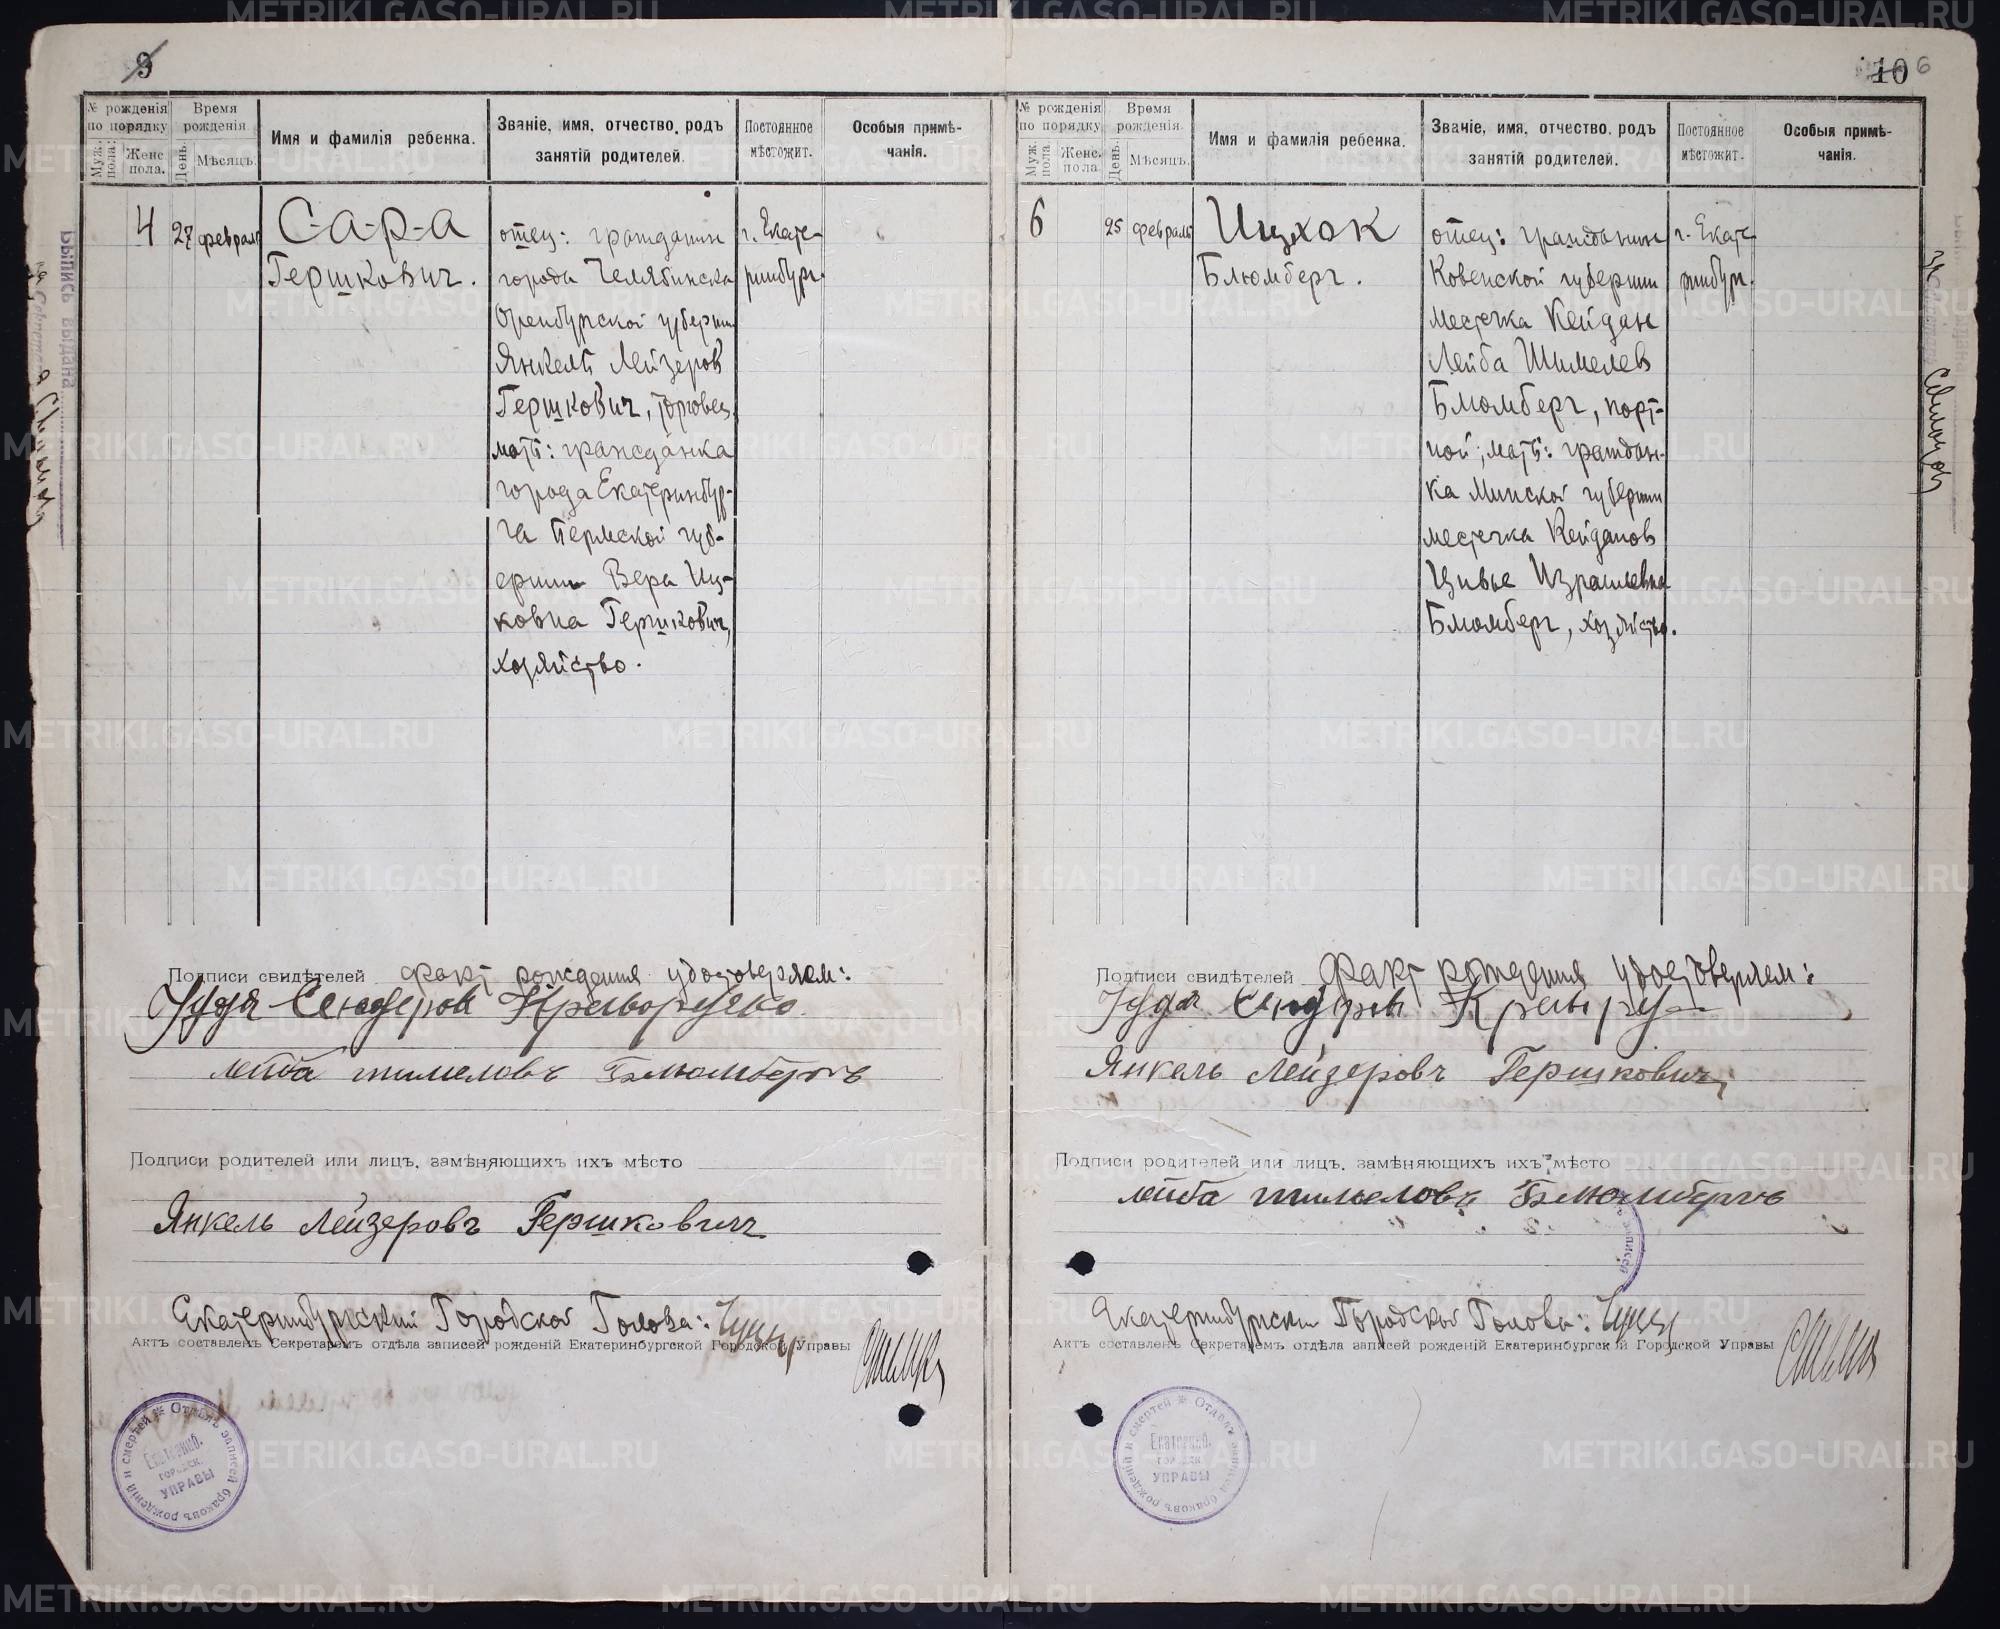 9
№ рожденія по порядку
Время рожденія
Имя и фамилія ребенка.
Званіе, имя, отчество, родъ занятій родителей.
Постоянное мѣстожит.
Особыя примѣчанія.
Муж. пола.
Женс. пола.
День.
Мѣсяцъ.
4
27
февраль
С-а-р-а
Гершкович.
отец: гражданин
города Челябинска
Оренбургской губернии
Янкель Лейзеров
Гершкович, торговец,
мать: гражданка
города Екатеринбур-
га Пермской губ-
ернии Вера Иц-
ковна Гершкович,
хозяйство.
г. Екате-
ринбург.
Подписи свидѣтелей факт рождения удостоверяем:
Лейба Шимеловъ Блюмбергъ
Подписи родителей или лицъ, замѣняющихъ ихъ мѣсто
Янкель Лейзеровъ Гершкович
Екатеринбургский Городской Голова:
Актъ составленъ Секретаремъ отдѣла записей рожденій Екатеринбургской Городской Управы
Отдѣлъ записей браковъ рожденій и смертей
Екатеринб.
городск.
УПРАВЫ
Выпись выдана
10 6
№ рожденія по порядку
Время рожденія.
Имя и фамилія ребенка.
Званіе, имя, отчество, родъ занятій родителей.
Постоянное мѣстожит.
Особыя примѣчанія.
Муж. пола.
Женс. пола
День.
Мѣсяцъ.
6
25
февраль
Ицхок
Блюмберг.
отец: гражданин
Ковенской губернии
местечка Кейдан
Лейба Шимелев
Блюмберг, порт-
ной; мать: граждан-
ка Минской губернии
местечка Кейданов
Цивье Израилевна
Блюмберг, хозяйство.
г. Екате-
ринбург.
Подписи свидѣтелей факт рождения удостоверяем:
Янкель Лейзеровъ Гершкович
Подписи родителей или лицъ, замѣняющихъ ихъ мѣсто
Лейба Шимеловъ Блюмбергъ
записей
Екатеринбургский Городской Голова:
Актъ составленъ Секретаремъ отдѣла записей рожденій Екатеринбургской Городской Управы
Отдѣлъ записей браковъ рожденій и смертей
Екатеринб.
городск.
УПРАВЫ
METRIKI.GASO-URAL.RU